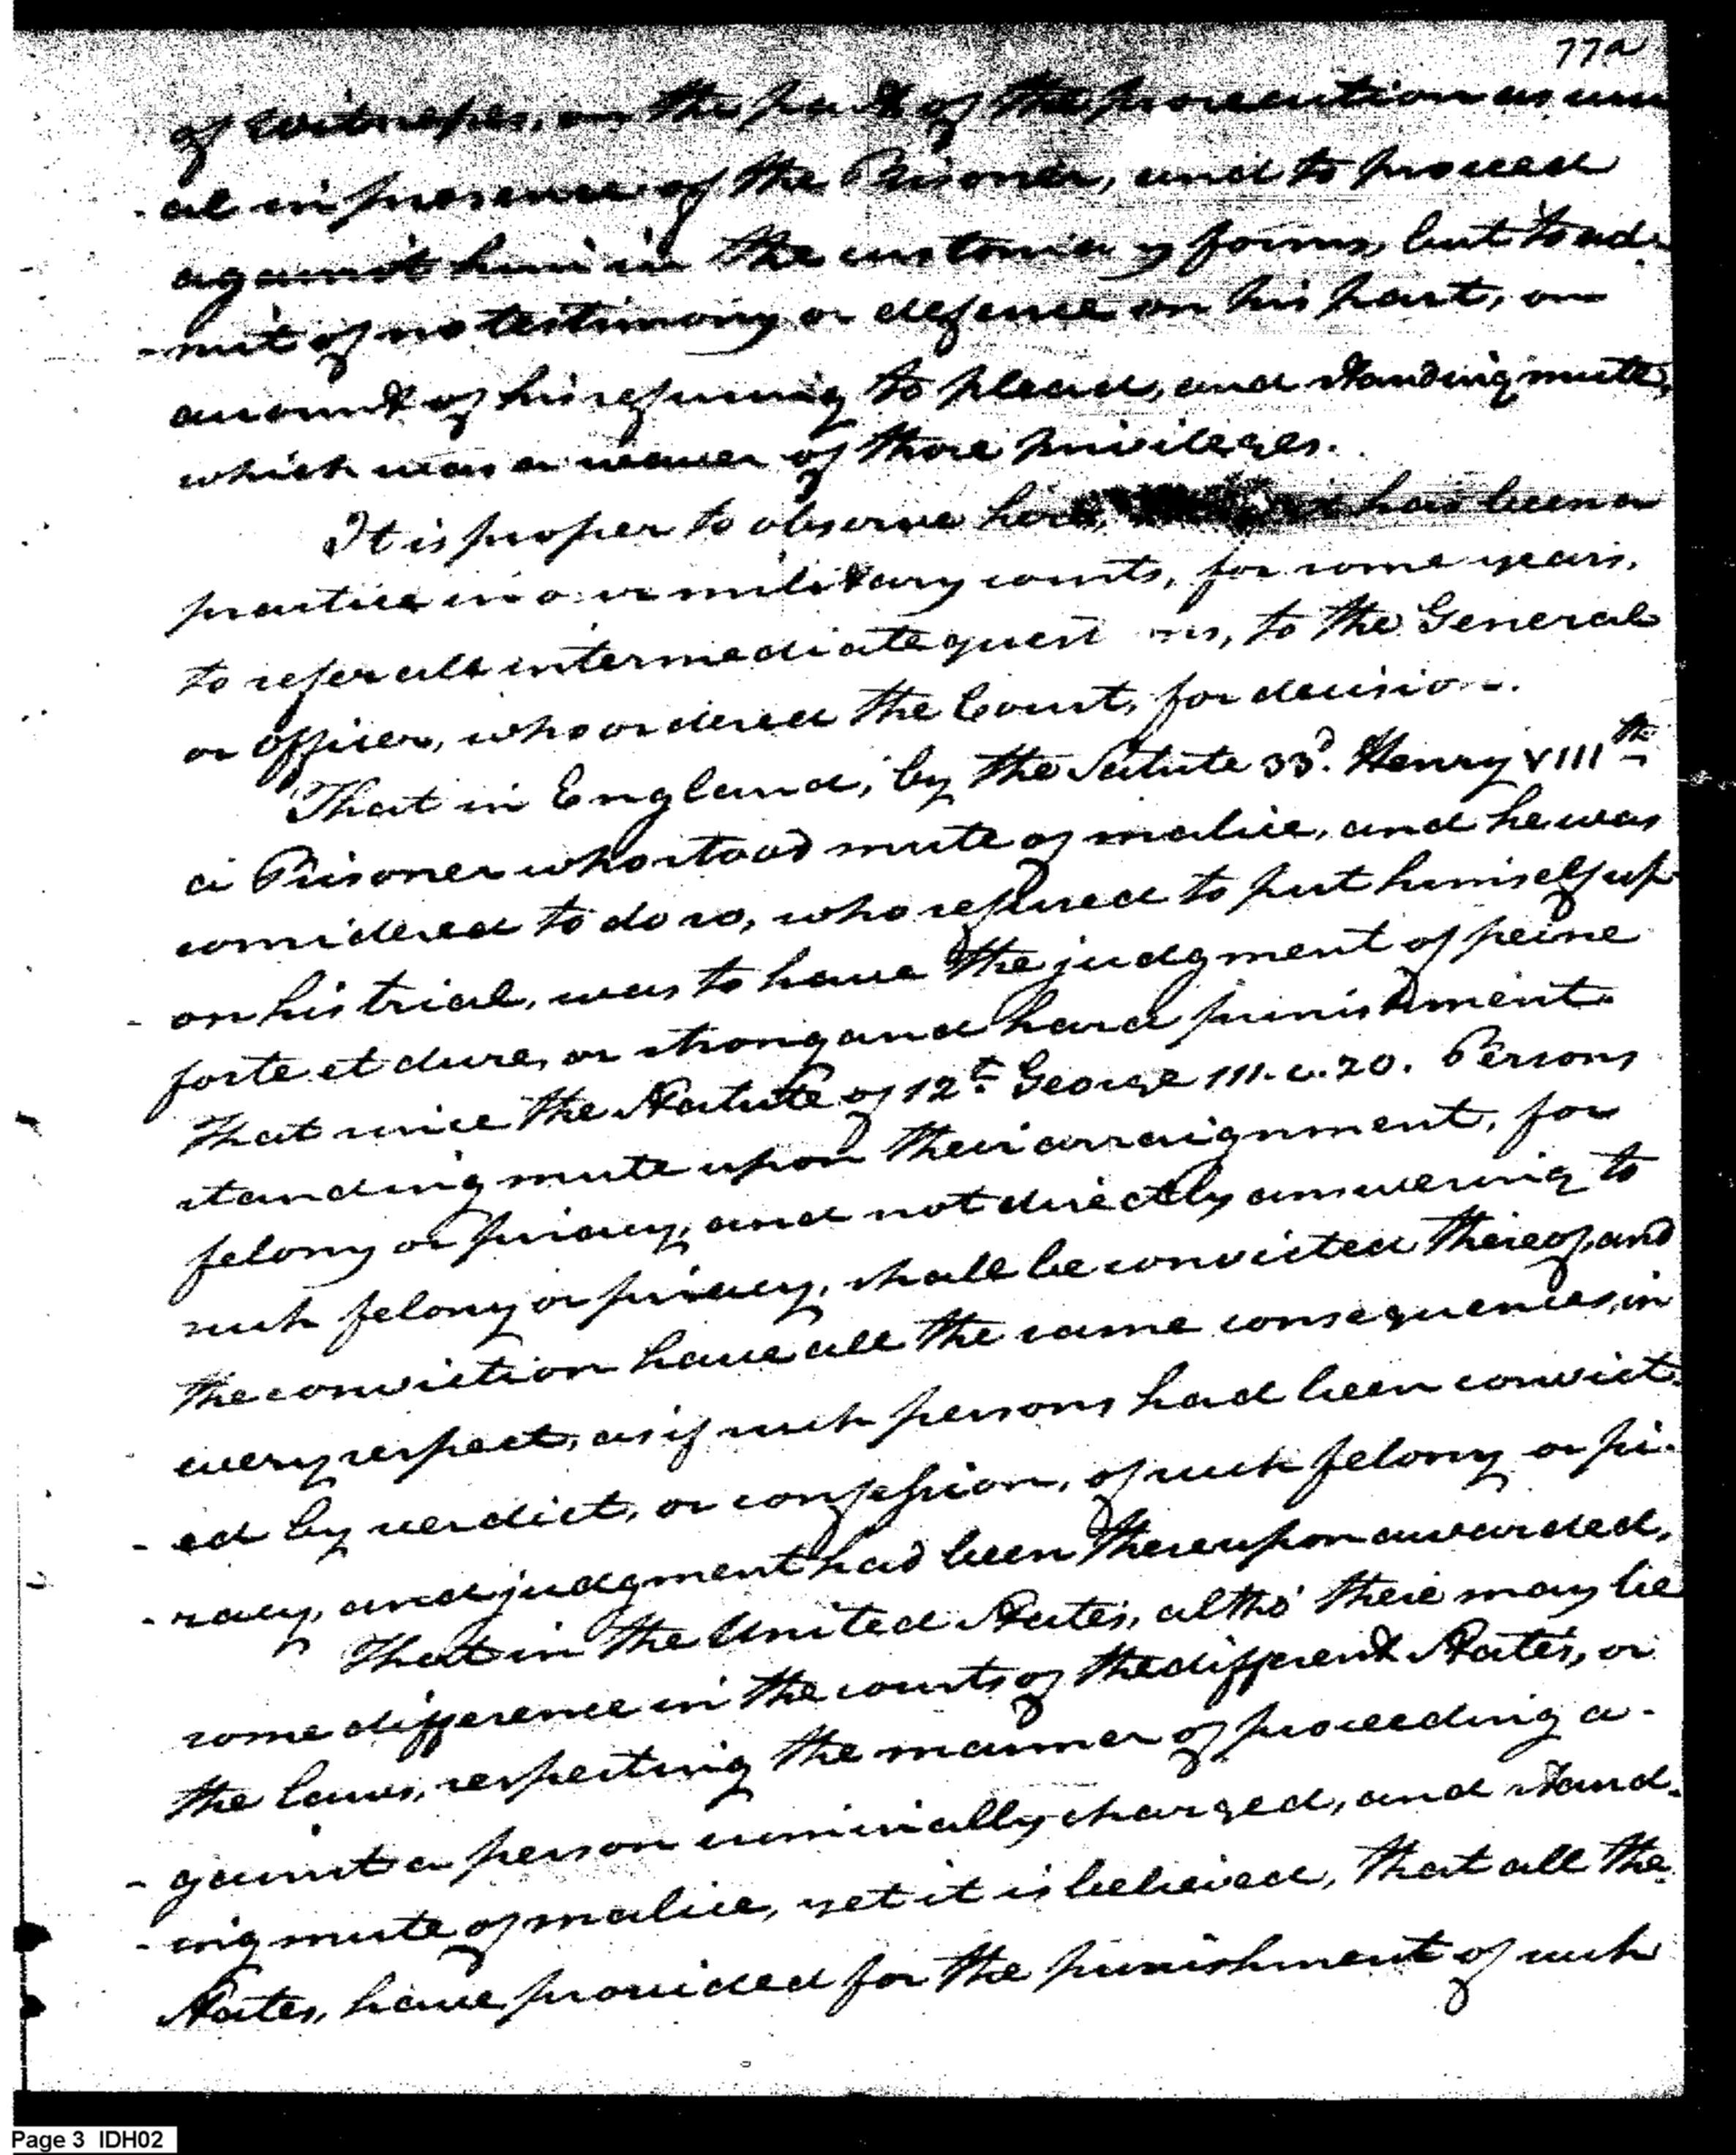 77a
of witnesses, on the part of the prosecution as usu
-al in presence of the Prisoner, and to proceed
against him in the customary forms, but to ad-
-mit of no testimony or defence on his part, on
account of his refusing to plead, and standing mute,
which was a waver of those privileges.
It is proper to observe here, has been a
practice in our military courts, for some years,
to refer all intermediate quest ns, to the General
or officer, who ordered the Court, for decision.
That in England, by the Satute 33d. Henry VIIIth
a Prisoner who stood mute of malice, and he was
considered to do so, who refused to put himself up
-on his trial, was to have the judgment of peine
forte et dure, or strong and hard punishment.
That since the Statute of 12th George III. c. 20. Persons
standing mute upon their arraignment, for
felony or piracy, and not directly answering to
such felony or piracy, shall be convicted thereof, and
the conviction have all the same consequences, in
every respect, as if such persons had been convict-
-ed by verdict, or confession, of such felony or pi-
-racy, and judgment had been thereupon awarded.
That in the United States, altho' there may be
some difference in the courts of the different States, or
the laws, respecting the manner of proceeding a-
-gainst a person criminally charged, and stand-
-ing mute of malice, yet it is believed, that all the
States, have provided for the punishment of such
Page 3 IDH02